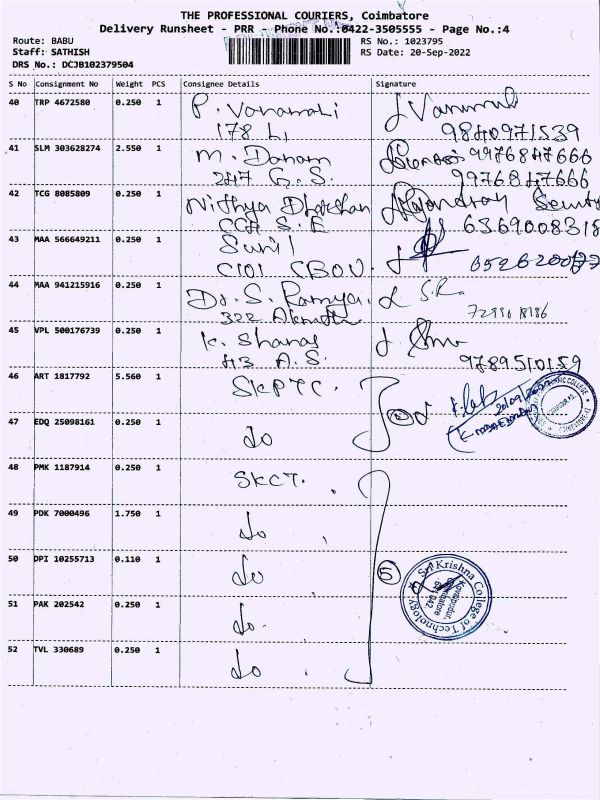 THE PROFESSIONAL COURIERS, Coimbatore
Delivery Runsheet - PRR - Phone No.:0422-3505555 - Page No.:4
Route: BABU
RS No.: 1023795
Staff: SATHISH
RS Date: 20-Sep-2022
DRS No.: DCJB102379504
S No Consignment No Weight PCS Consignee Details Signature
40 TRP 4672580 0.250 1 P. Vanamali
178 L, 9840971539
41 SLM 303628274 2.550 1 M. Danam 9976847666
247 G.S. 9976847666
42 TCG 8085809 0.250 1 Nithya Dharshan
6369008318
43 MAA 566649211 0.250 1 Sunil
C101 CBOU.
44 MAA 941215916 0.250 1 Dr. S. Ramya. S.R.
322
45 VPL 500176739 0.250 1 K. Sharas
43 A.S. 9789510159
46 ART 1817792 5.560 1 SKPTC.
47 EDQ 25098161 0.250 1 do
48 PMK 1187914 0.250 1 SKCT.
49 PDK 7000496 1.750 1 do
50 DPI 10255713 0.110 1 do 5
51 PAK 202542 0.250 1 do
Sri Krishna College of Technology
Kovaipudur, Coimbatore 641 042
52 TVL 330689 0.250 1 do